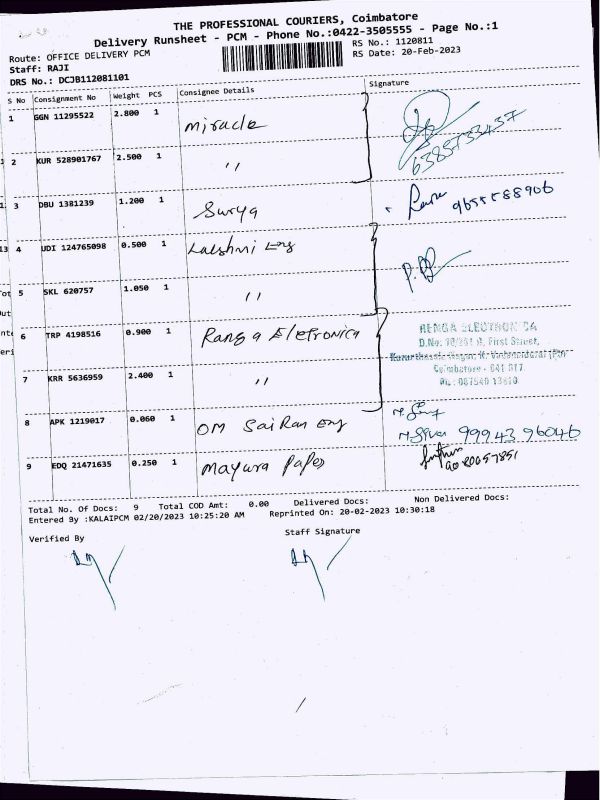 THE PROFESSIONAL COURIERS, Coimbatore
Delivery Runsheet - PCM - Phone No.:0422-3505555 - Page No.:1
Route: OFFICE DELIVERY PCM
RS No.: 1120811
Staff: RAJI
RS Date: 20-Feb-2023
DRS No.: DCJB112081101
S No Consignment No Weight PCS Consignee Details Signature
1 GGN 11295522 2.800 1 miracle
6385733437
2 KUR 528901767 2.500 1 ,,
3 DBU 1381239 1.200 1 Surya 9655588906
4 UDI 124765098 0.500 1 Lakshmi Eng
5 SKL 620757 1.050 1 ,,
6 TRP 4198516 0.900 1 Ranga Eletronica
RENGA ELECTRONICA
First Street,
7 KRR 5636959 2.400 1 ,,
Coimbatore - 641 017
8 APK 1219017 0.060 1 OM Sai Ram Eng
M. Siva 99943 96046
9 EDQ 21471635 0.250 1 Mayura Papes
Total No. Of Docs: 9 Total COD Amt: 0.00 Delivered Docs: Non Delivered Docs:
Entered By :KALAIPCM 02/20/2023 10:25:20 AM Reprinted On: 20-02-2023 10:30:18
Verified By Staff Signature